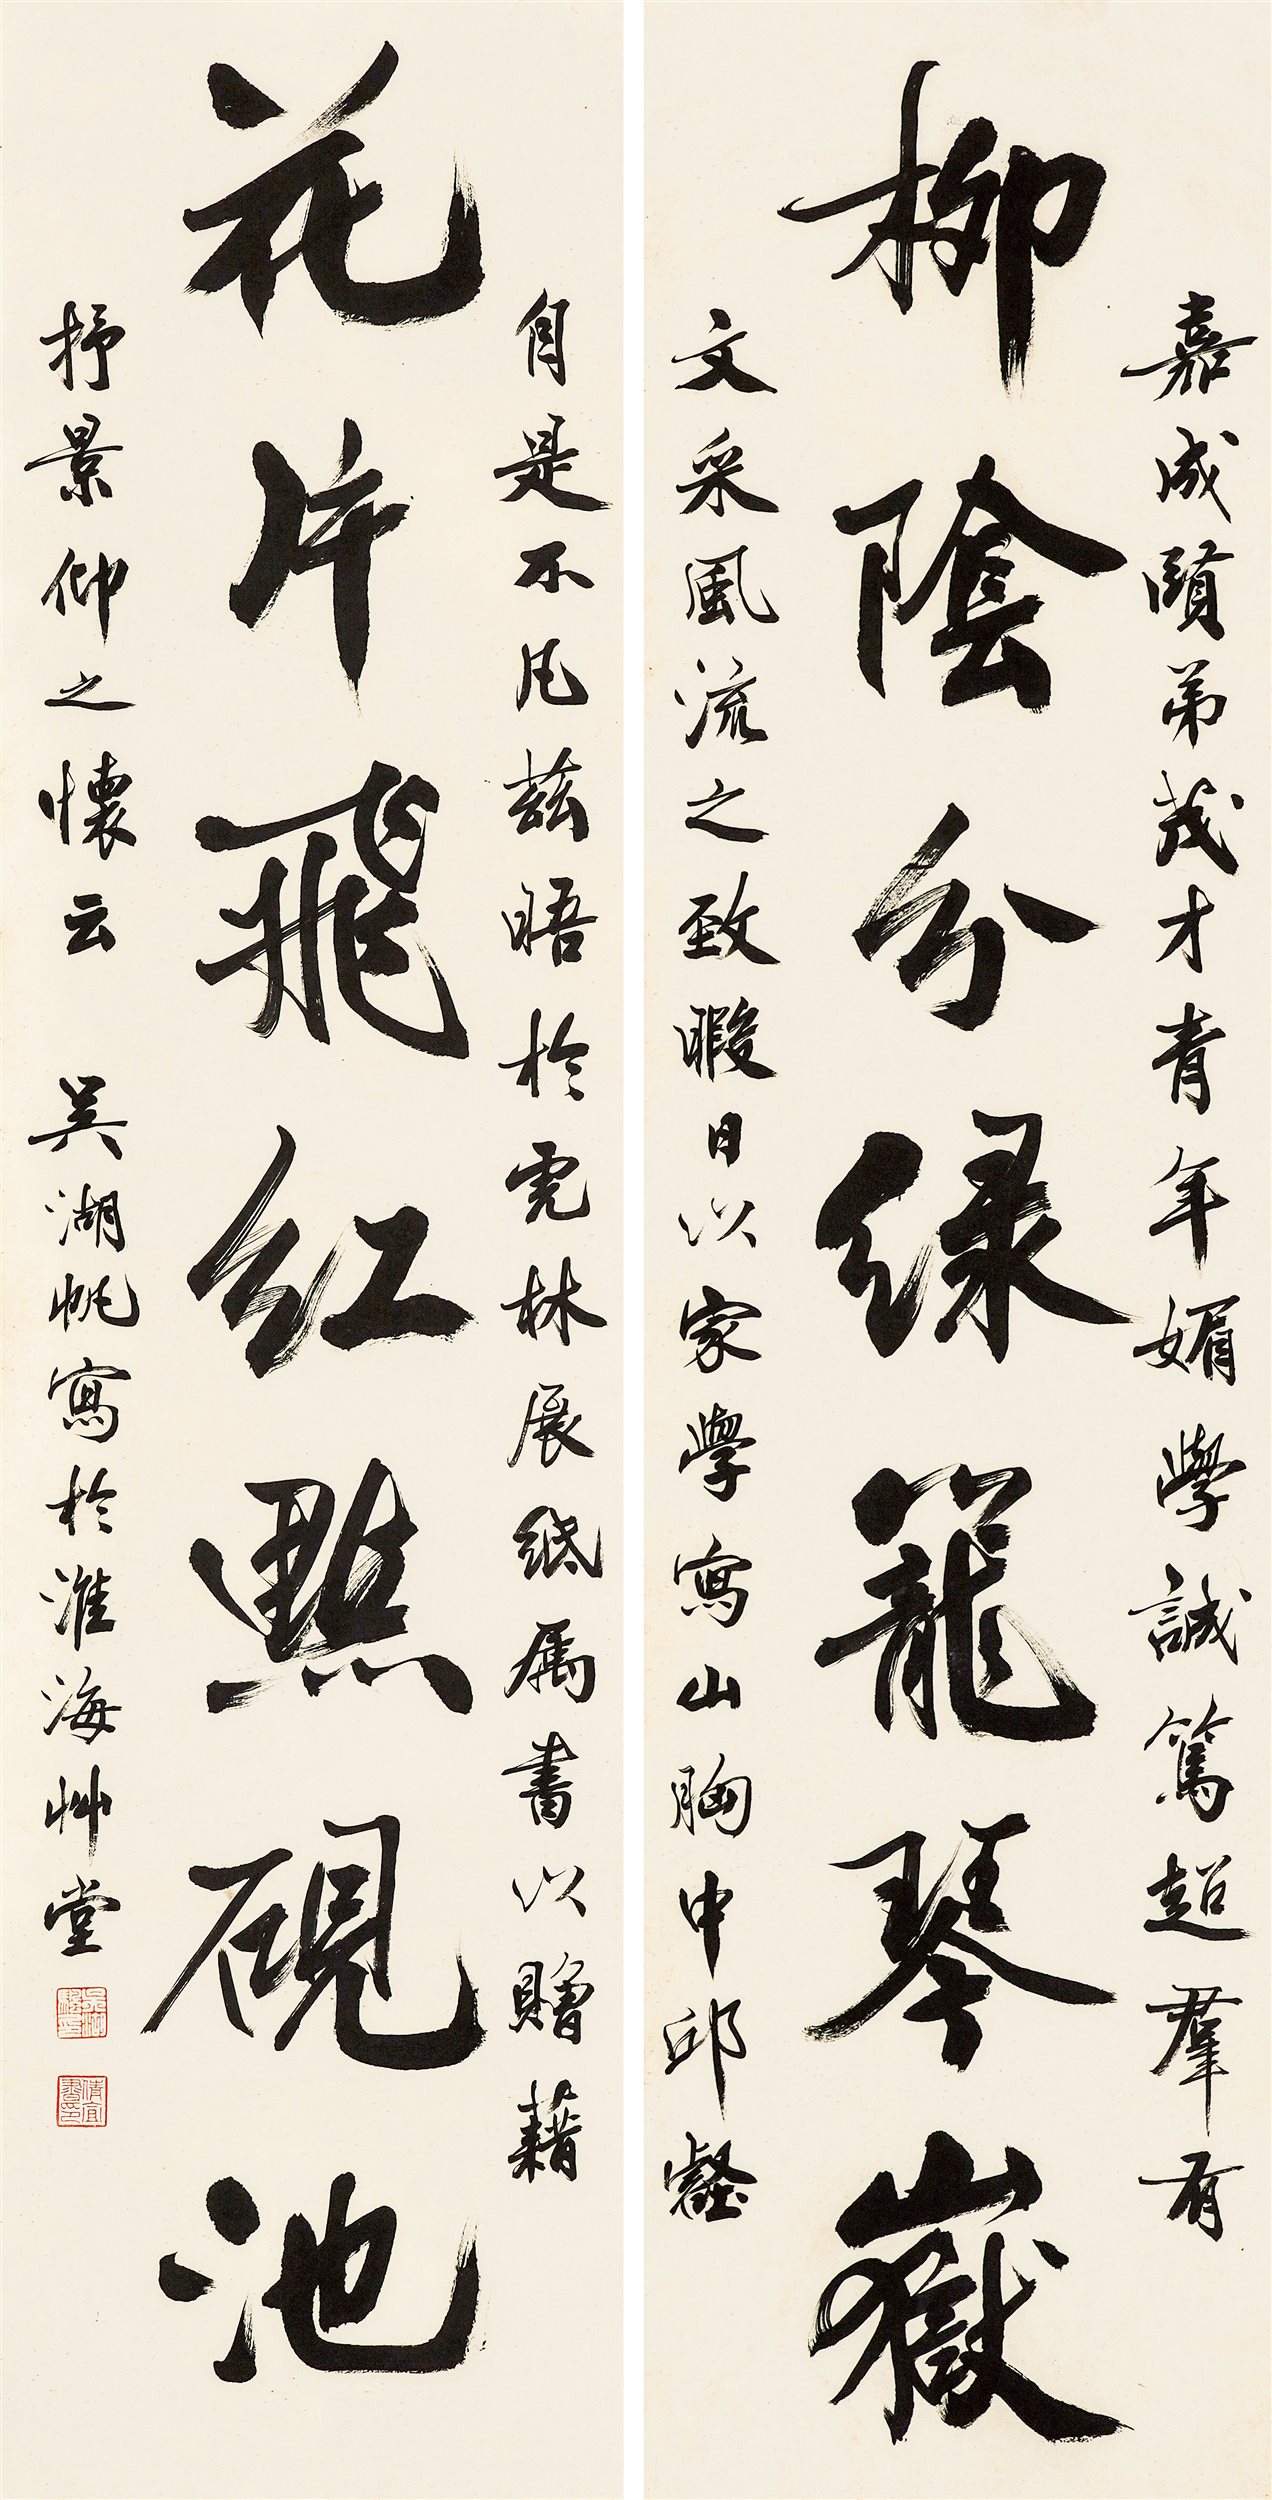 嘉成賾弟茂才青年媚學誠篤超羣有
柳陰分绿籠琴嶽
文采風流之致暇日以家學寫山胸中邱壑
自是不凡茲晤於虎林展紙属書以贈藉
花片飛红點硯池
抒景仰之懷云 吴湖帆寫於淮海艸堂
倩宜書印